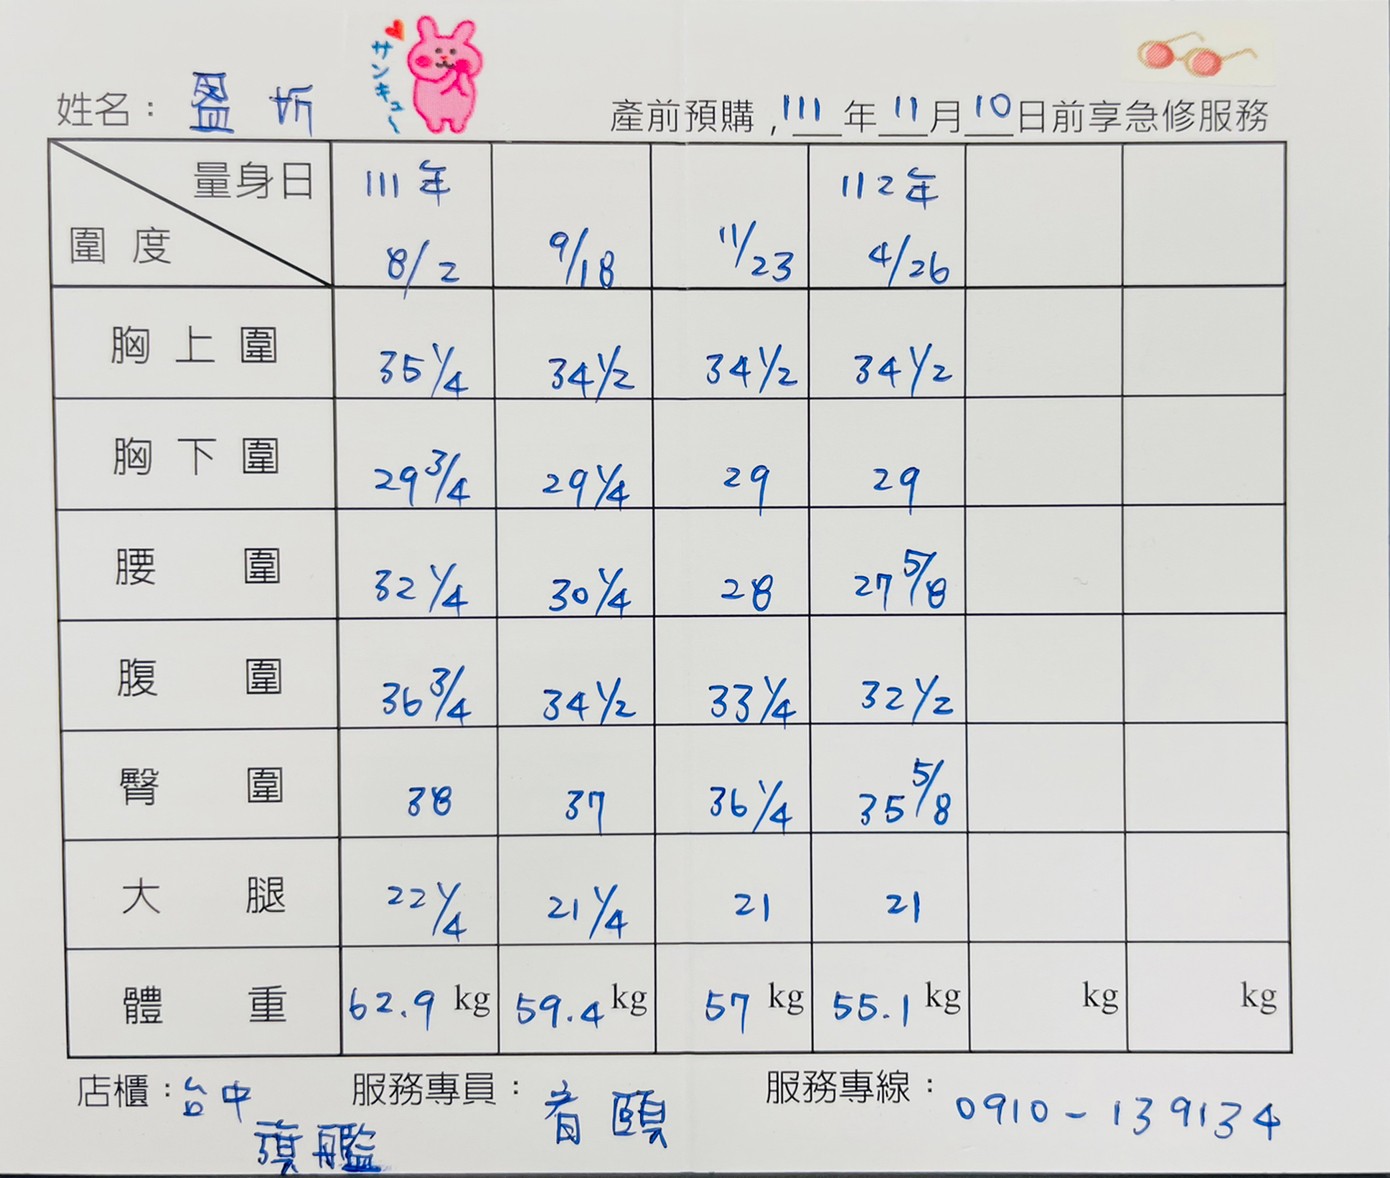 サンキュ～
姓名：盈妡
產前預購，111年11月10日前享急修服務
量身日 111年 112年
圍度 8/2 9/18 11/23 4/26
胸上圍 35 1/4 34 1/2 34 1/2 34 1/2
胸下圍 29 3/4 29 1/4 29 29
腰圍 32 1/4 30 1/4 28 27 5/8
腹圍 36 3/4 34 1/2 33 1/4 32 1/2
臀圍 38 37 36 1/4 35 5/8
大腿 22 1/4 21 1/4 21 21
體重 62.9 kg 59.4 kg 57 kg 55.1 kg kg kg
店櫃：台中 服務專員：頤 服務專線：0910-139134
旗艦